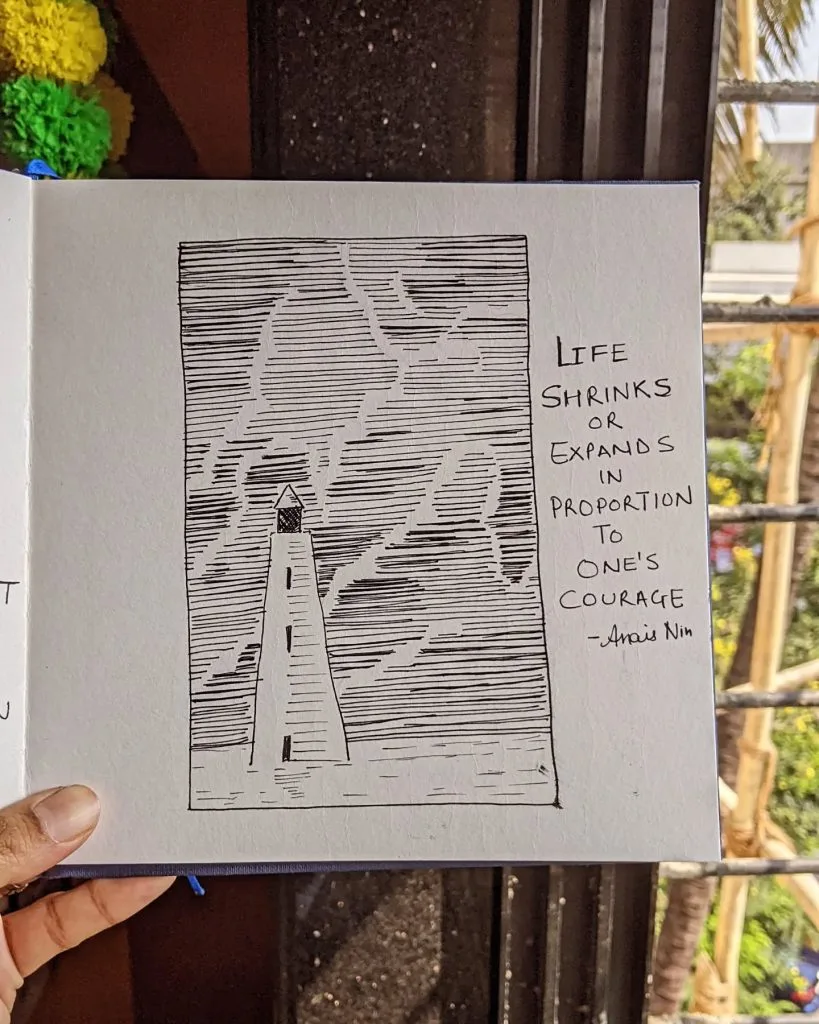 LIFE
SHRINKS
OR
EXPANDS
IN
PROPORTION
TO
ONE'S
COURAGE
-Anais Nin
T
N